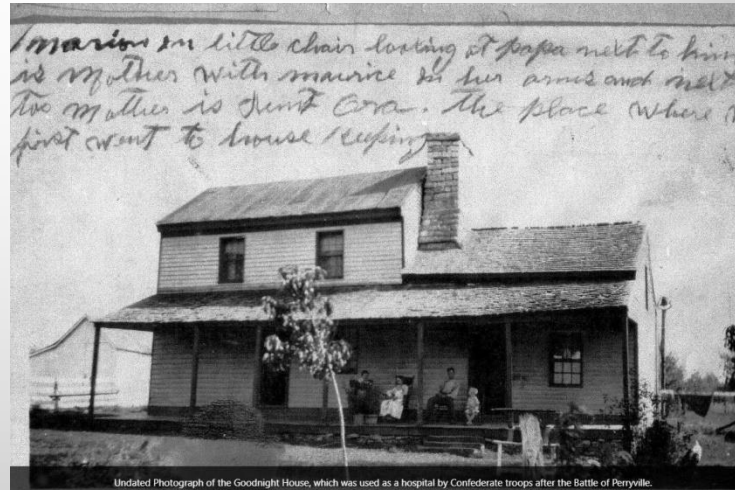 marion on little chair looking at papa next to him
is Mother with maurice in her arms and next
too mother is Aunt Ora. The place where
first went to house keeping
Undated Photograph of the Goodnight House, which was used as a hospital by Confederate troops after the Battle of Perryville.